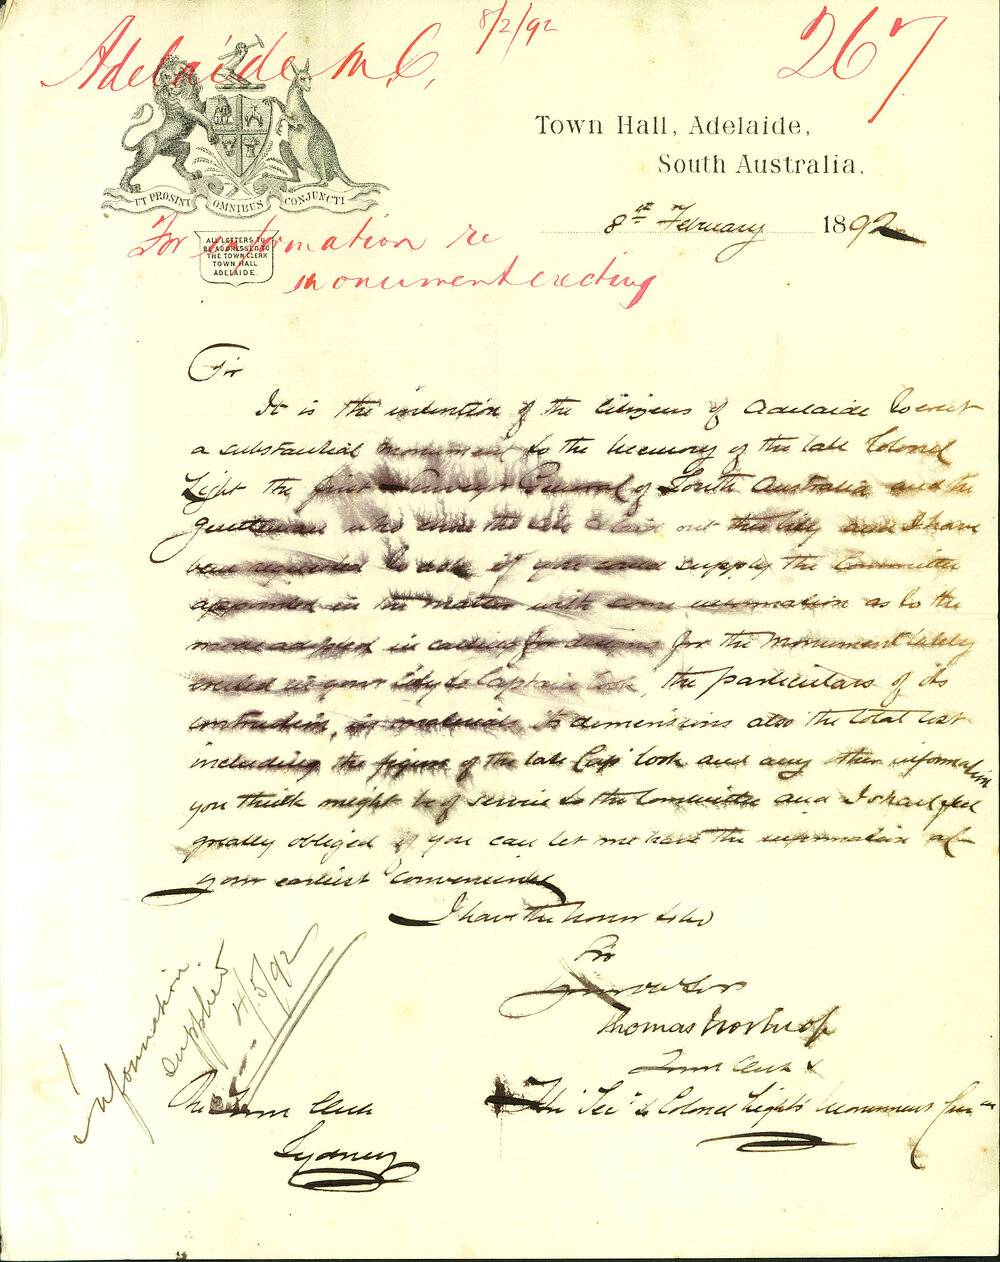 Adelaide M.C. 8/2/92 267
UT PROSINT OMNIBUS CONJUNCTI
Town Hall, Adelaide,
South Australia.
8th February 1892
ALL LETTERS TO
BE ADDRESSED TO
THE TOWN CLERK
TOWN HALL
ADELAIDE.
For information re
monument erecting
Sir
It is the intention of the Citizens of Adelaide to erect
a substantial monument to the Memory of the late Colonel
Light the first Surveyor General of South Australia and the
gentleman who chose the site & laid out this City and I have
been requested to ask if you could supply the Committee
appointed in the matter with some information as to the
mode adopted in calling for designs for the Monument lately
erected in your City to Captain Cook, the particulars of its
construction, its materials, its dimensions also the total cost
including the figure of the late Capt Cook and any other information
you think might be of service to the Committee and I shall feel
greatly obliged if you can let me have the information at
your earliest convenience
I have the honor to be
Sir
Your ob Serv
Thomas Worsnop
Town Clerk &
Hon Sec to Colonel Light's Monument Com
Information
supplied 4/5/92
The Town Clerk
Sydney